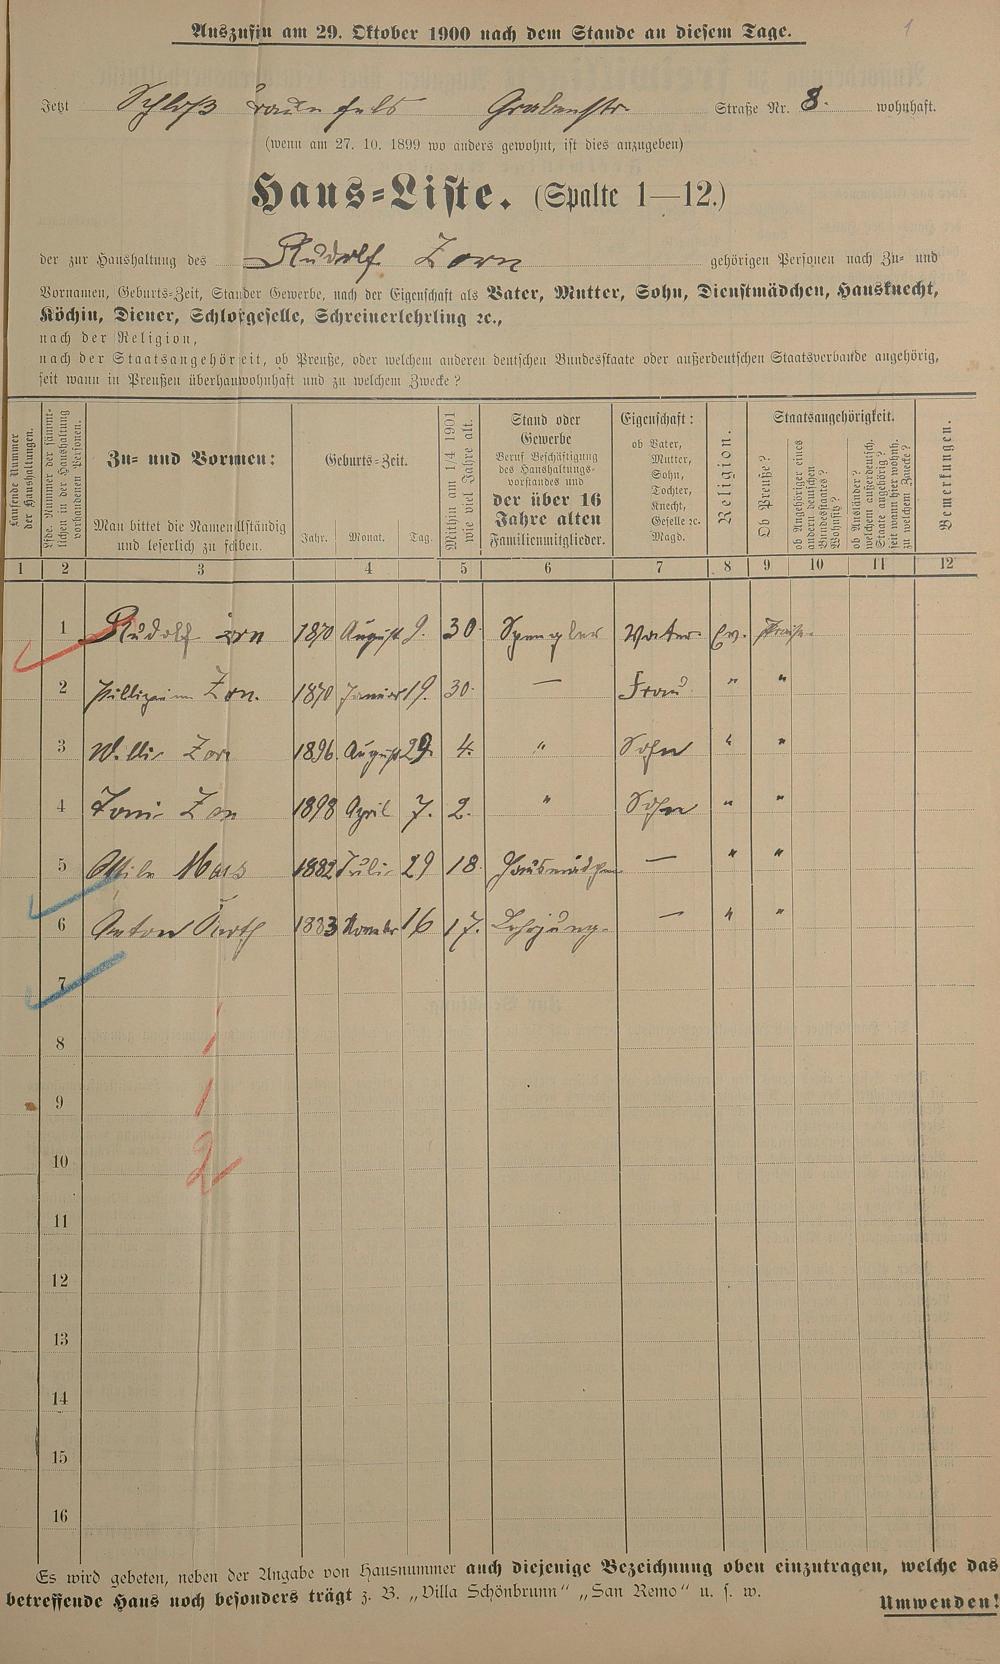 Auszufün am 29. Oktober 1900 nach dem Stande an diesem Tage.
1
Jetzt Schloß Graben Str. Straße Nr. 8. wohnhaft.
(wenn am 27. 10. 1899 wo anders gewohnt, ist dies anzugeben)
Haus-Liste. (Spalte 1—12.)
der zur Haushaltung des Rudolf Zorn gehörigen Personen nach Zu- und
Vornamen, Geburts-Zeit, Stand Gewerbe, nach der Eigenschaft als Vater, Mutter, Sohn, Dienstmädchen, Hausknecht,
Köchin, Diener, Schlossgeselle, Schreinerlehrling ⁊c.,
nach der Religion,
nach der Staatsangehöreit, ob Preuße, oder welchem anderen deutschen Bundesstaate oder außerdeutschen Staatsverbande angehörig,
seit wann in Preußen überhauwohnhaft und zu welchem Zwecke?
Laufende Nummer der Haushaltungen.
Lfde. Nummer der sämmtlichen in der Haushaltung vorhandenen Personen.
Zu- und Vormen:
Man bittet die Namenllständig
und leserlich zu schben.
Geburts-Zeit.
Jahr. Monat. Tag.
Mithin am 1/4 1901 wie viel Jahre alt.
Stand oder
Gewerbe
Beruf Beschäftigung
des Haushaltungs-
vorstandes und
der über 16
Jahre alten
Familienmitglieder.
Eigenschaft:
ob Vater,
Mutter,
Sohn,
Tochter,
Knecht,
Geselle ⁊c.
Magd.
Religion.
Staatsangehörigkeit.
Ob Preuße?
ob Angehöriger eines andern deutschen Bundesstaates? Wohnsitz?
ob Ausländer? welchem außerdeutsch. Staate angehörig? seit wann hier wohnh. zu welchem Zwecke?
Bemerkungen.
1 2 3 4 5 6 7 8 9 10 11 12
1 Rudolf orn 1870 August 9. 30. Spengler Vater Ev. Preuße
2 Zorn. 1870 Januar 19. 30. — Frau " "
3 Willi Zorn 1896. August 29. 4. " Sohn " "
4 Toni Zorn 1898 April 7. 2. " Sohn " "
5 Maus 1882 Juli 29 18. Hausmädchen — " "
6 Anton 1883 November 16 17. Lehrjung. — " "
7
8
9
10
11
12
13
14
15
16
1
1
2
Es wird gebeten, neben der Angabe von Hausnummer auch diejenige Bezeichnung oben einzutragen, welche das
betreffende Haus noch besonders trägt z. B. „Villa Schönbrunn“ „San Remo“ u. s. w.
Umwenden!